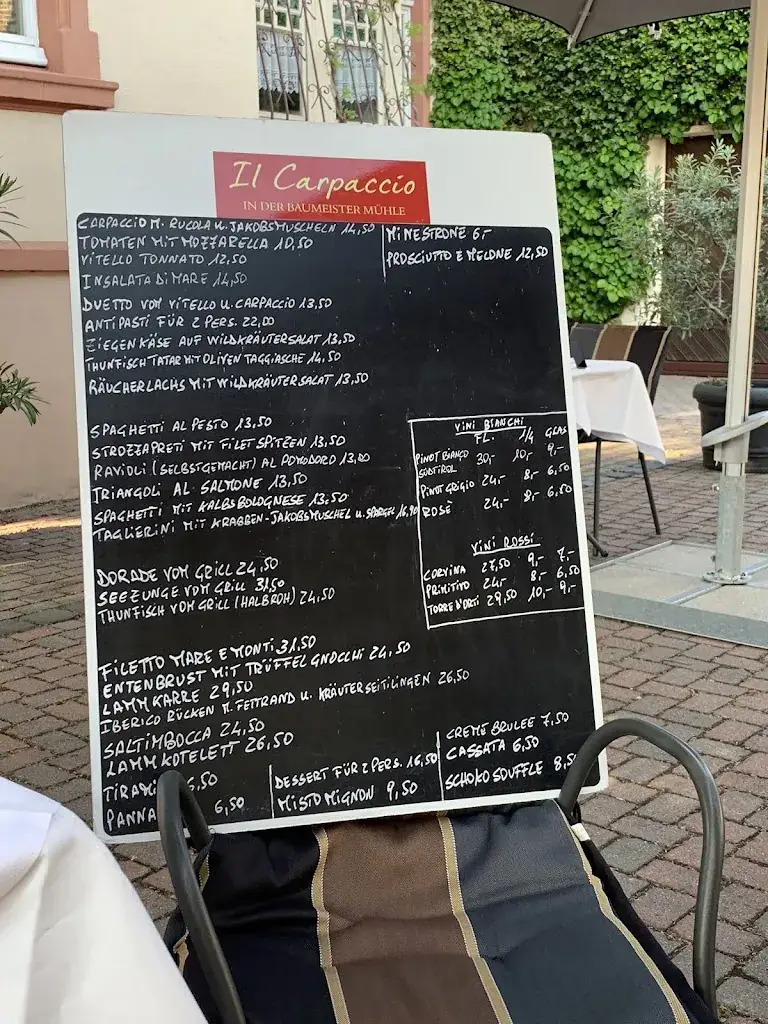 Il Carpaccio
IN DER BAUMEISTER MÜHLE
CARPACCIO M. RUCOLA U. JAKOBSMUSCHELN 14,50
TOMATEN MIT MOZZARELLA 10,50
VITELLO TONNATO 12,50
INSALATA DI MARE 14,50
MINESTRONE 6,-
PROSCIUTTO E MELONE 12,50
DUETTO VOM VITELLO U. CARPACCIO 13,50
ANTIPASTI FÜR 2 PERS. 22,00
ZIEGENKÄSE AUF WILDKRÄUTERSALAT 13,50
THUNFISCH TATAR MIT OLIVEN TAGGIASCHE 14,50
RÄUCHERLACHS MIT WILDKRÄUTERSALAT 13,50
SPAGHETTI AL PESTO 13,50
STROZZAPRETI MIT FILETSPITZEN 13,50
RAVIOLI (SELBSTGEMACHT) AL POMODORO 13,00
TRIANGOLI AL SALMONE 13,50
SPAGHETTI MIT KALBSBOLOGNESE 13,50
TAGLIERINI MIT KRABBEN-JAKOBSMUSCHEL U. SPARGEL 16,90
VINI BIANCHI
FL. 1/4 GLAS
PINOT BIANCO SÜDTIROL 30,- 10,- 9,-
PINOT GRIGIO 24,- 8,- 6,50
ROSÉ 24,- 8,- 6,50
VINI ROSSI
CORVINA 27,50 9,- 7,-
PRIMITIVO 24,- 8,- 6,50
TORRE D'ORTI 29,50 10,- 9,-
DORADE VOM GRILL 24,50
SEEZUNGE VOM GRILL 31,50
THUNFISCH VOM GRILL (HALBROH) 24,50
FILETTO MARE E MONTI 31,50
ENTENBRUST MIT TRÜFFEL GNOCCHI 24,50
LAMMKARRE 29,50
IBERICO RÜCKEN M. FETTRAND U. KRÄUTERSEITLINGEN 26,50
SALTIMBOCCA 24,50
LAMMKOTELETT 26,50
TIRAMI 6,50
PANNA 6,50
DESSERT FÜR 2 PERS. 16,50
MISTO MIGNON 9,50
CREME BRULEE 7,50
CASSATA 6,50
SCHOKO SOUFFLE 8,50